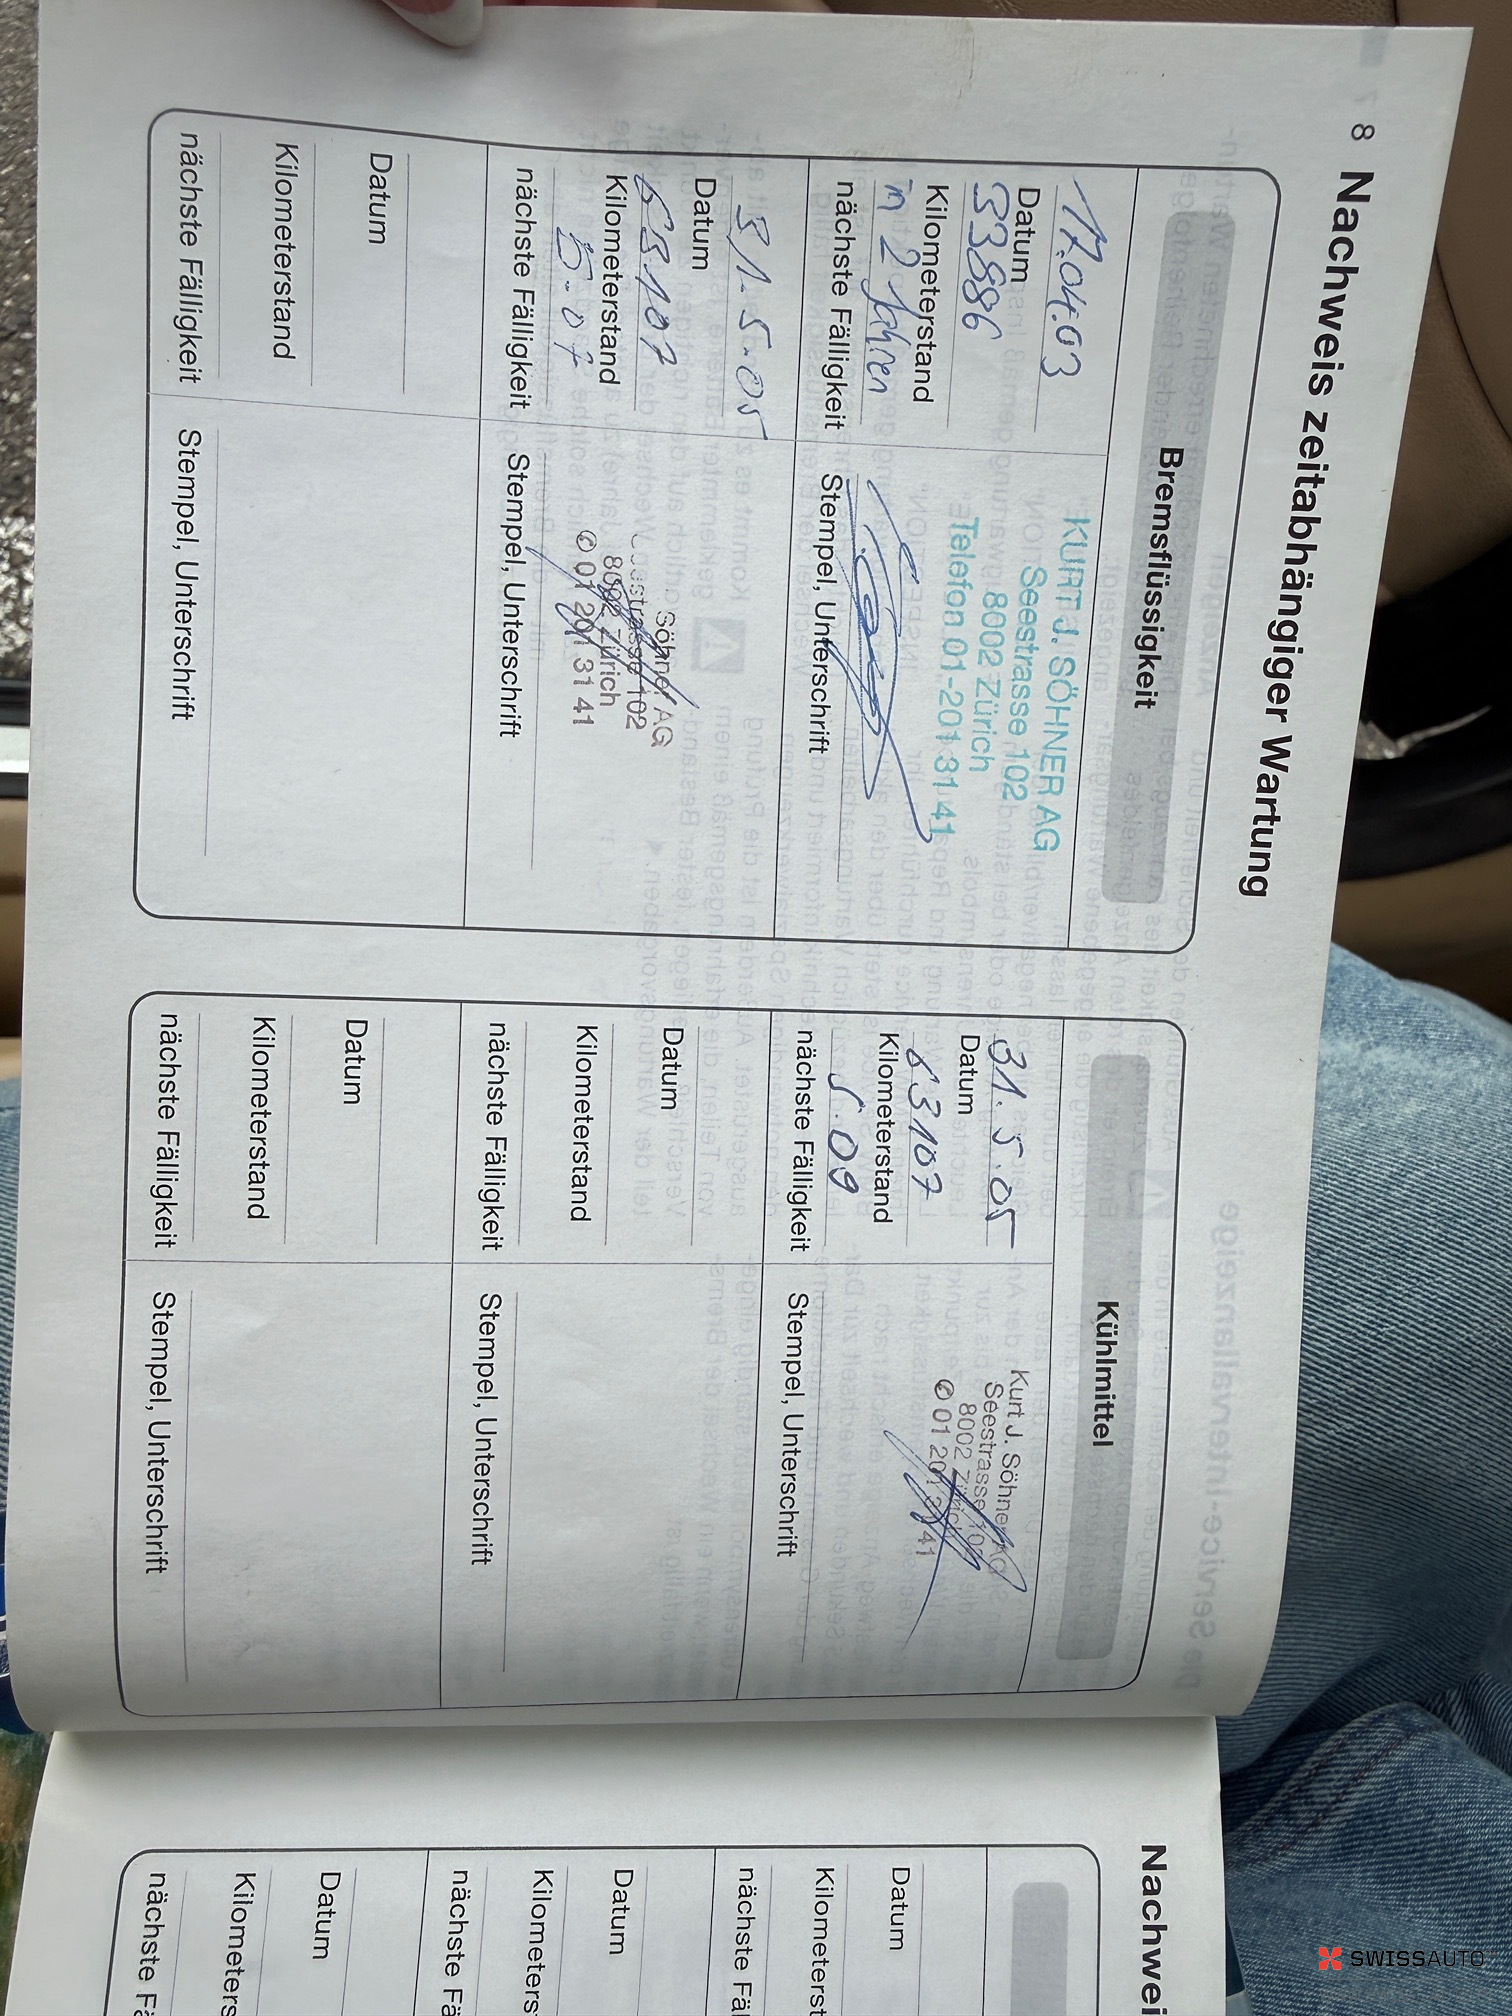 8 Nachweis zeitabhängiger Wartung
Bremsflüssigkeit
17.04.03
Datum
33886
Kilometerstand
in 2 Jahren
nächste Fälligkeit
KURT J. SÖHNER AG
Seestrasse 102
8002 Zürich
Telefon 01-201 31 41
Stempel, Unterschrift
31.5.05
Datum
63107
Kilometerstand
5.07
nächste Fälligkeit
Söhner AG
Seestrasse 102
8002 Zürich
✆ 01 201 31 41
Stempel, Unterschrift
Datum
Kilometerstand
nächste Fälligkeit
Stempel, Unterschrift
Kühlmittel
31.5.05
Datum
63107
Kilometerstand
5.09
nächste Fälligkeit
Kurt J. Söhner AG
Seestrasse 102
8002 Zürich
✆ 01 201 31 41
Stempel, Unterschrift
Datum
Kilometerstand
nächste Fälligkeit
Stempel, Unterschrift
Datum
Kilometerstand
nächste Fälligkeit
Stempel, Unterschrift
Nachwei
Datum
Kilometerst
nächste Fäl
Datum
Kilometerst
nächste Fä
Datum
Kilometers
nächste Fä
SWISSAUTO